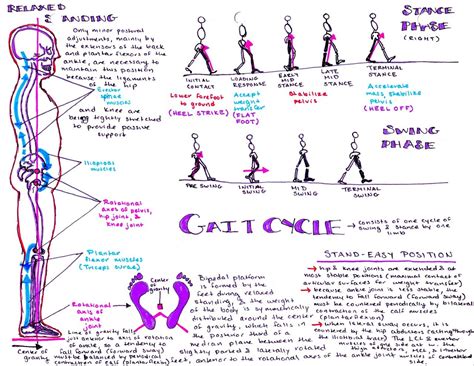 RELAXED
STANDING
Only minor postural
adjustments, mainly by
the extensors of the back
and plantar flexors of the
ankle, are necessary to
maintain this position
because the ligaments
of the hip
and knee are
being tightly stretched
to provide passive
support
Erector
spinae
muscles
Iliopsoas
muscles
Rotational
axes of pelvis,
hip joint, &
knee joint
Plantar
flexor muscles
(Triceps surae)
Rotational
axis of
ankle
joint
Line of gravity falls
just anterior to axis of rotation
of ankle, so a tendency to
fall forward (forward sway)
must be balanced by periodical
contraction of calf (plantarflexors)
Center of
gravity
STANCE
PHASE
(RIGHT)
INITIAL
CONTACT
LOADING
RESPONSE
EARLY
MID
STANCE
LATE
MID
STANCE
TERMINAL
STANCE
Lower forefoot
to ground
(HEEL STRIKE)
Accept
weight
transfer
(FLAT
FOOT)
Stabilize
pelvis
Accelerate
mass, stabilize
pelvis
(HEEL OFF)
SWING
PHASE
PRE SWING
INITIAL
SWING
MID
SWING
TERMINAL
SWING
GAIT CYCLE
consists of one cycle of
swing & stance by one
limb
Center of
gravity
Bipedal platform
is formed by the
feet during relaxed
standing, & the weight
of the body is symmetrically
distributed around the center
of gravity, which falls in
the posterior third of a
median plane between the
slightly parted & laterally rotated
feet, anterior to the rotational axes of the ankle joint
STAND-EASY POSITION
hip & knee joints are extended & at
most stable positions (maximal contact of
articular surfaces for weight transfer)
because ankle joint is less stable, a
tendency to fall forward (forward sway)
must be countered periodically by bilateral
contraction of the calf muscles
When lateral sway occurs, it is
countered by the hip abductors (acting through
the iliotibial tract)